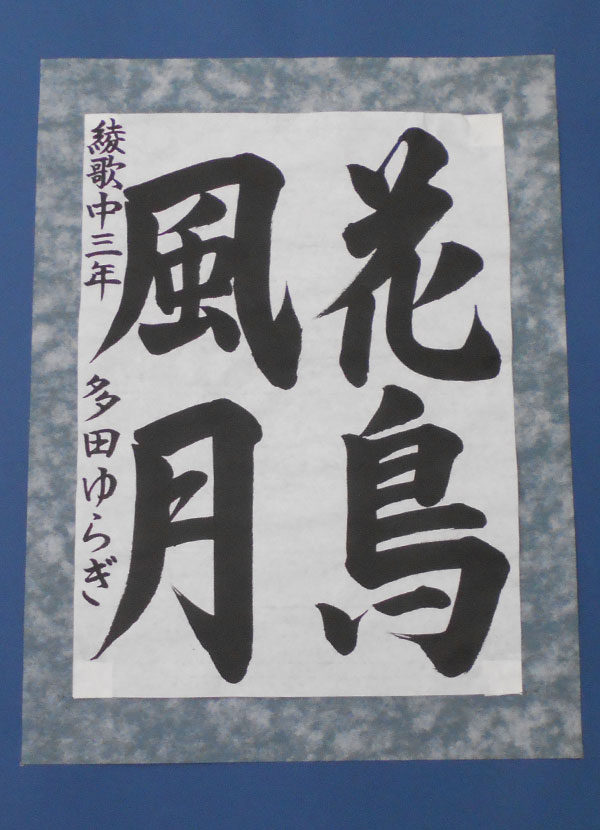 花鳥
風月
綾歌中三年 多田ゆらぎ